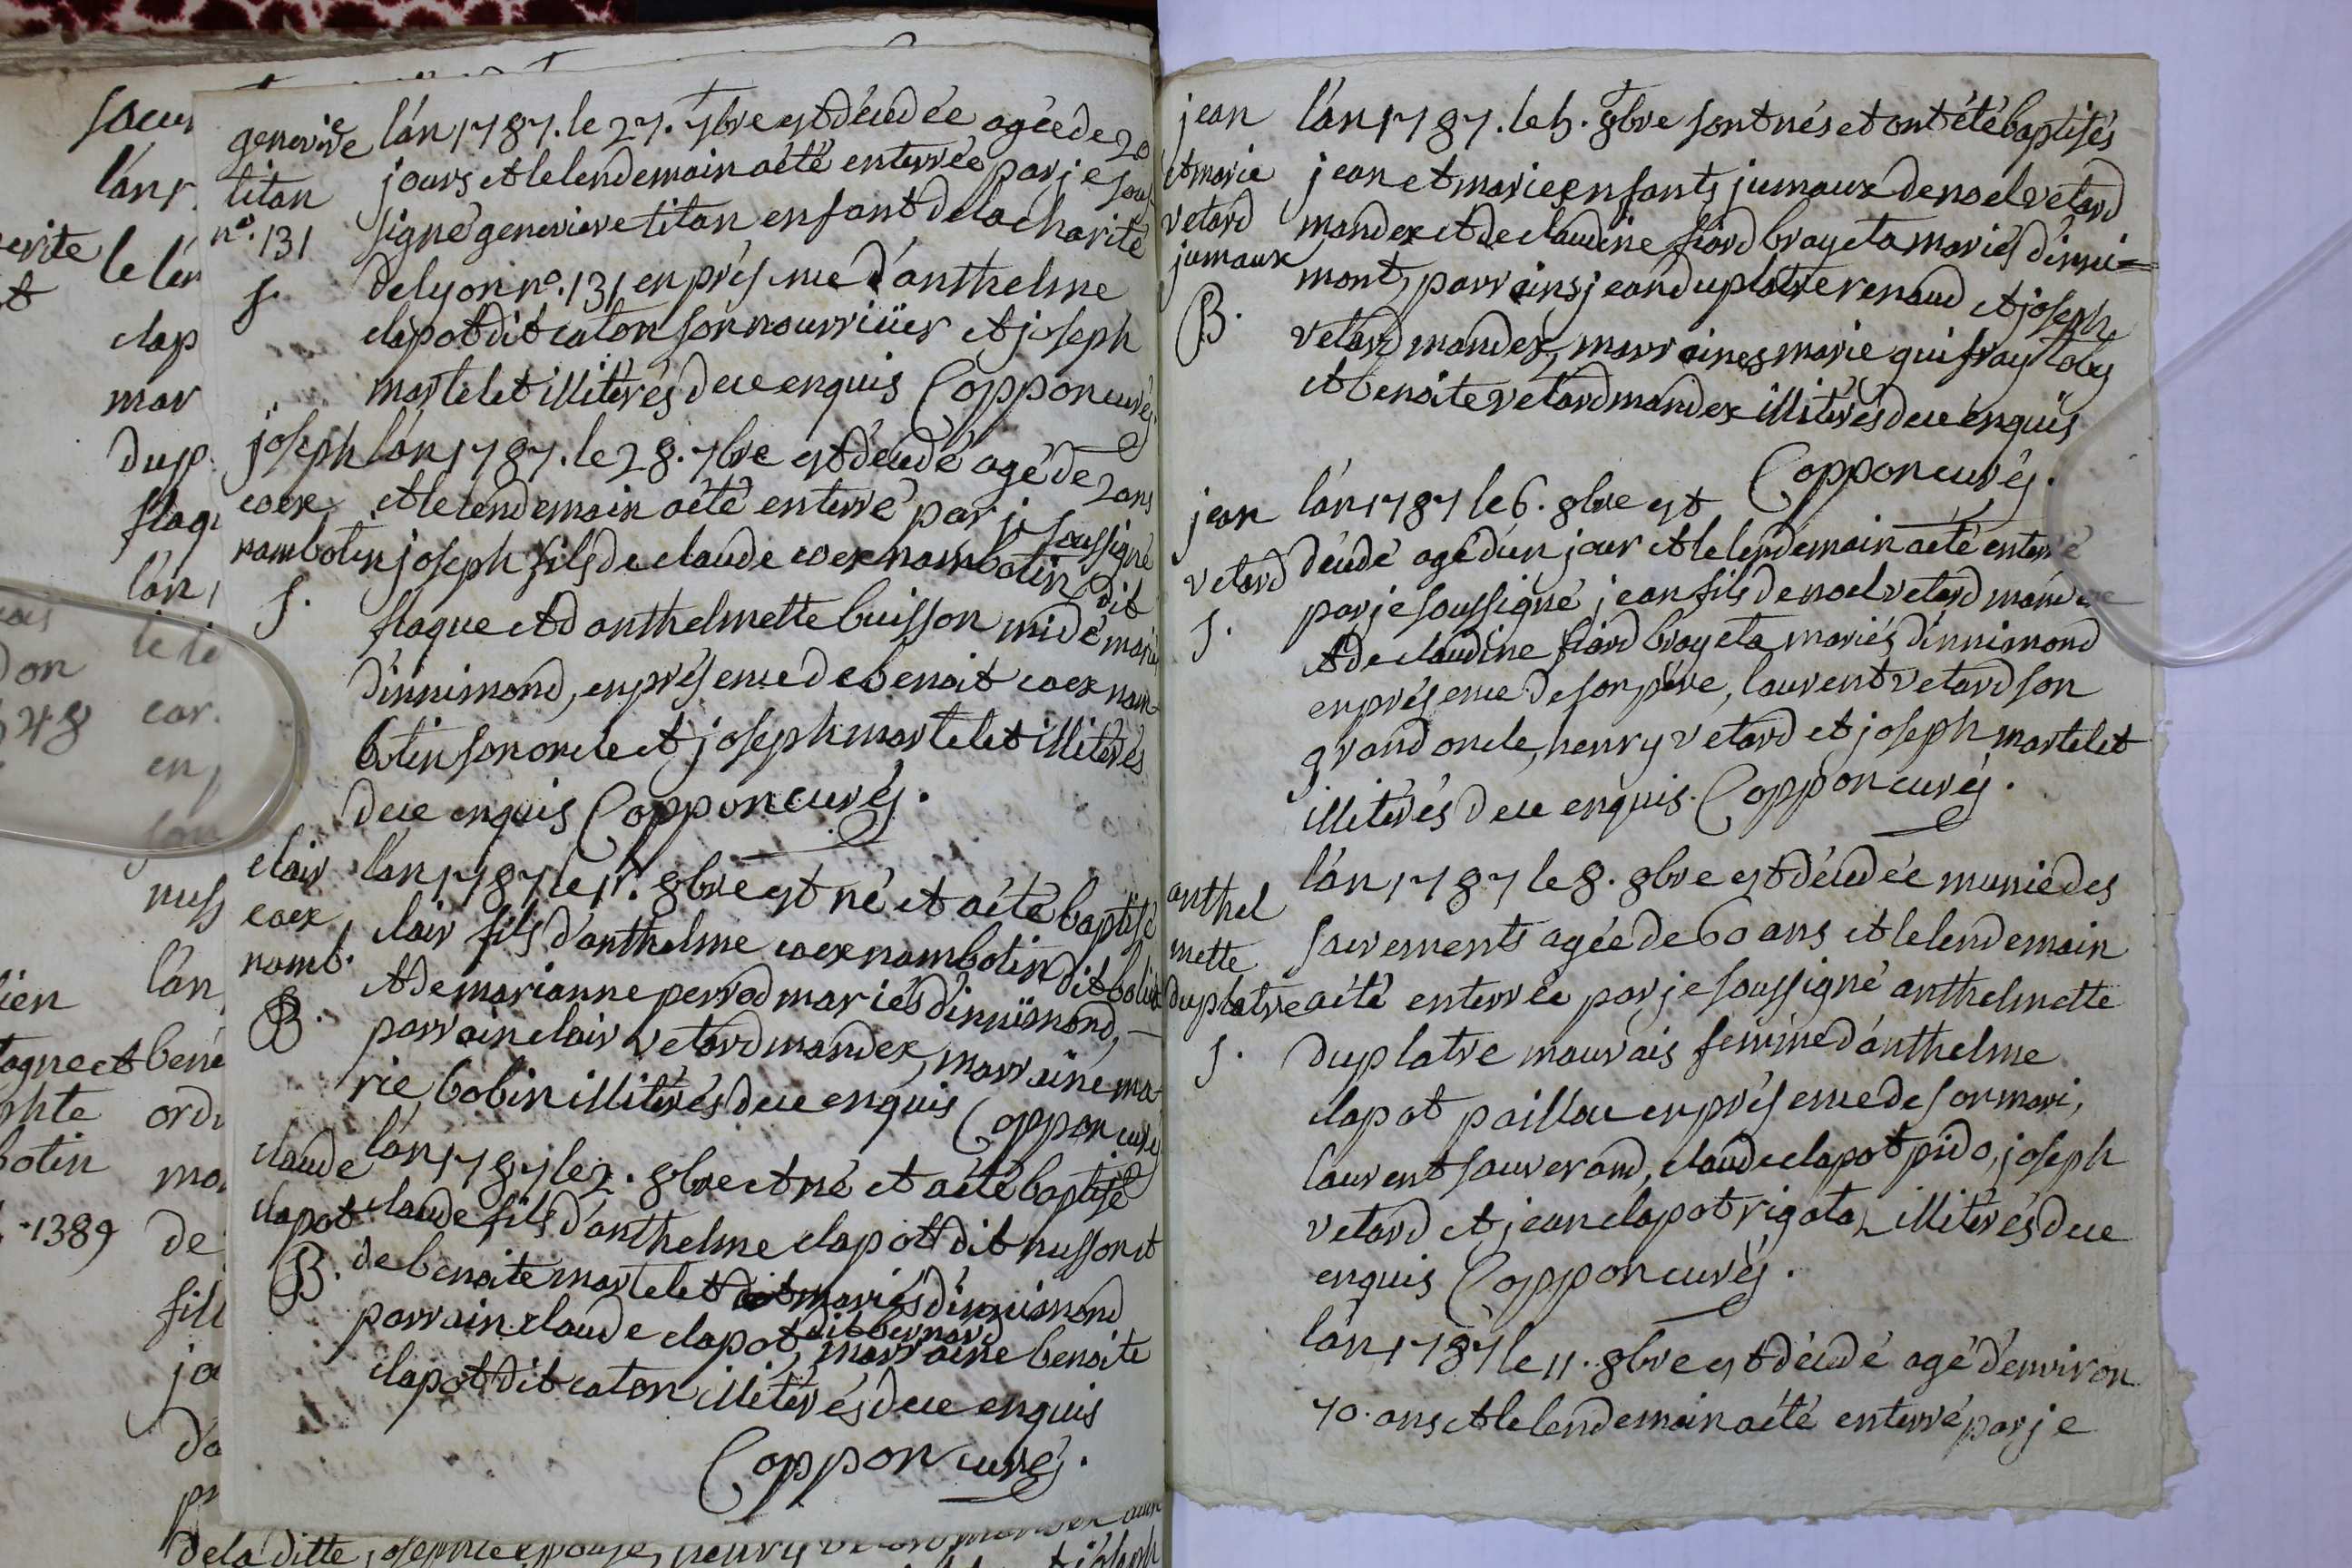 genevieve
titan
nº. 131
S.
l'an 1787. le 27. 7bre est décédée agée de 20
jours et le lendemain a été enterrée par je sous
signé genevieve titan enfant de la charité
de lyon nº. 131 en présence d'anthelme
clapot dit caton son nourricier et joseph
martelet illiterés de ce enquis Coppon curé
joseph
coex
nambotin
S.
l'an 1787. le 28. 7bre est décédé agé de 2 ans
et le lendemain a été enterré par je soussigné
joseph fils de claude coex nambotin dit
flaque et d'anthelmette buisson midé mariés
d'innimond, en présence de benoit coex nam-
botin son oncle et joseph martelet illiterés
de ce enquis Coppon curé.
clair
coex
namb.
B.
l'an 1787 le 1r. 8bre est né et a été baptisé
clair fils d'anthelme coex nambotin dit
et de marianne perrod mariés d'innimond,
parrain clair vetard mandex, marraine ma-
rie bobin illiterés de ce enquis Coppon curé
claude
clapot
B.
l'an 1787 le 2. 8bre et né et a été baptisé
claude fils d'anthelme clapot dit nusson et
de benoite martelet mariés d'innimond
dit bernard
parrain claude clapot, marraine benoite
clapot dit caton illiterés de ce enquis
Coppon curé.
jean
et marie
vetard
jumaux
B.
l'an 1787. le 5. 8bre sont nés et ont été baptisés
jean et marie enfants jumaux de noel vetard
mandex et de claudine fiard brayeta mariés d'inni=
mont, parrains jean duplatre renaud et joseph
vetard mandex, marraines marie quifray
et benoite vetard mandex illiterés de ce enquis
Coppon curé.
jean
vetard
S.
l'an 1787 le 6. 8bre est
décédé agé d'un jour et le lendemain a été enterré
par je soussigné jean fils de noel vetard mandex
et de claudine fiard brayeta mariés d'innimond
en présence de son père, laurent vetard son
grand oncle, henry vetard et joseph martelet
illiterés de ce enquis. Coppon curé.
anthel
mette
duplatre
S.
l'an 1787 le 8. 8bre est décédée munie des
sacrements agée de 60 ans et le lendemain
a été enterrée par je soussigné anthelmette
duplatre mauvais femme d'anthelme
clapot paillou en présence de son mari,
laurent sauverand, claude clapot pido, joseph
vetard et jean clapot rigota illiterés de ce
enquis Coppon curé.
l'an 1787 le 11. 8bre est décédé agé d'environ
70. ans et le lendemain a été enterré par je